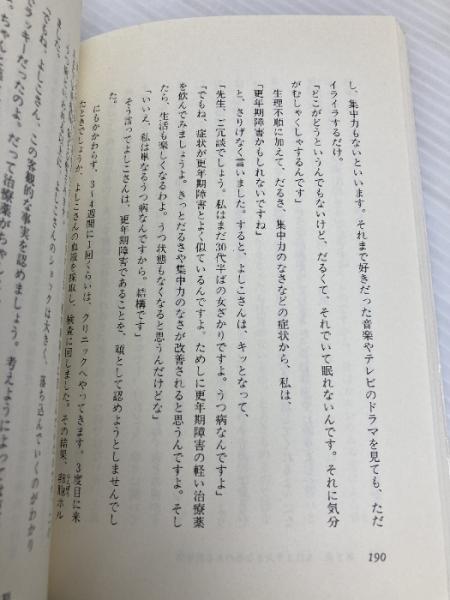 し、集中力もないといいます。それまで好きだった音楽やテレビのドラマを見ても、ただ
イライラするだけ。
「どこがどうというんでもないけど、だるくて、それでいて眠れないんです。それに気分
がむしゃくしゃするんです」
生理不順に加えて、だるさ、集中力のなさなどの症状から、私は、
「更年期障害かもしれないですね」
と、さりげなく言いました。すると、よしこさんは、キッとなって、
「先生、ご冗談でしょう。私はまだ30代半ばの女ざかりですよ。うつ病なんですよ」
「でもね、症状が更年期障害とよく似ているんですよ。ためしに更年期障害の軽い治療薬
を飲んでみましょうよ。きっとだるさや集中力のなさが改善されると思うんですよ。そし
たら、生活も楽しくなるわよ。うつ状態もなくなると思うんだけどな」
「いいえ、私は単なるうつ病なんですから。結構です」
そう言ってよしこさんは、更年期障害であることを、頑として認めようとしませんでし
た。
にもかかわらず、3〜4週間に1回くらいは、クリニックへやってきます。3度目に来
たときでしょうか、よしこさんの血液を採取し、検査に回しました。その結果、卵胞ホル
190
さんのショックは大きく、落ち込んでいくのがわかり
「でもね、よしこさん、この客観的な事実を認めましょう。考えようによっては
ラッキーだったのよ。だって治療薬がちゃん